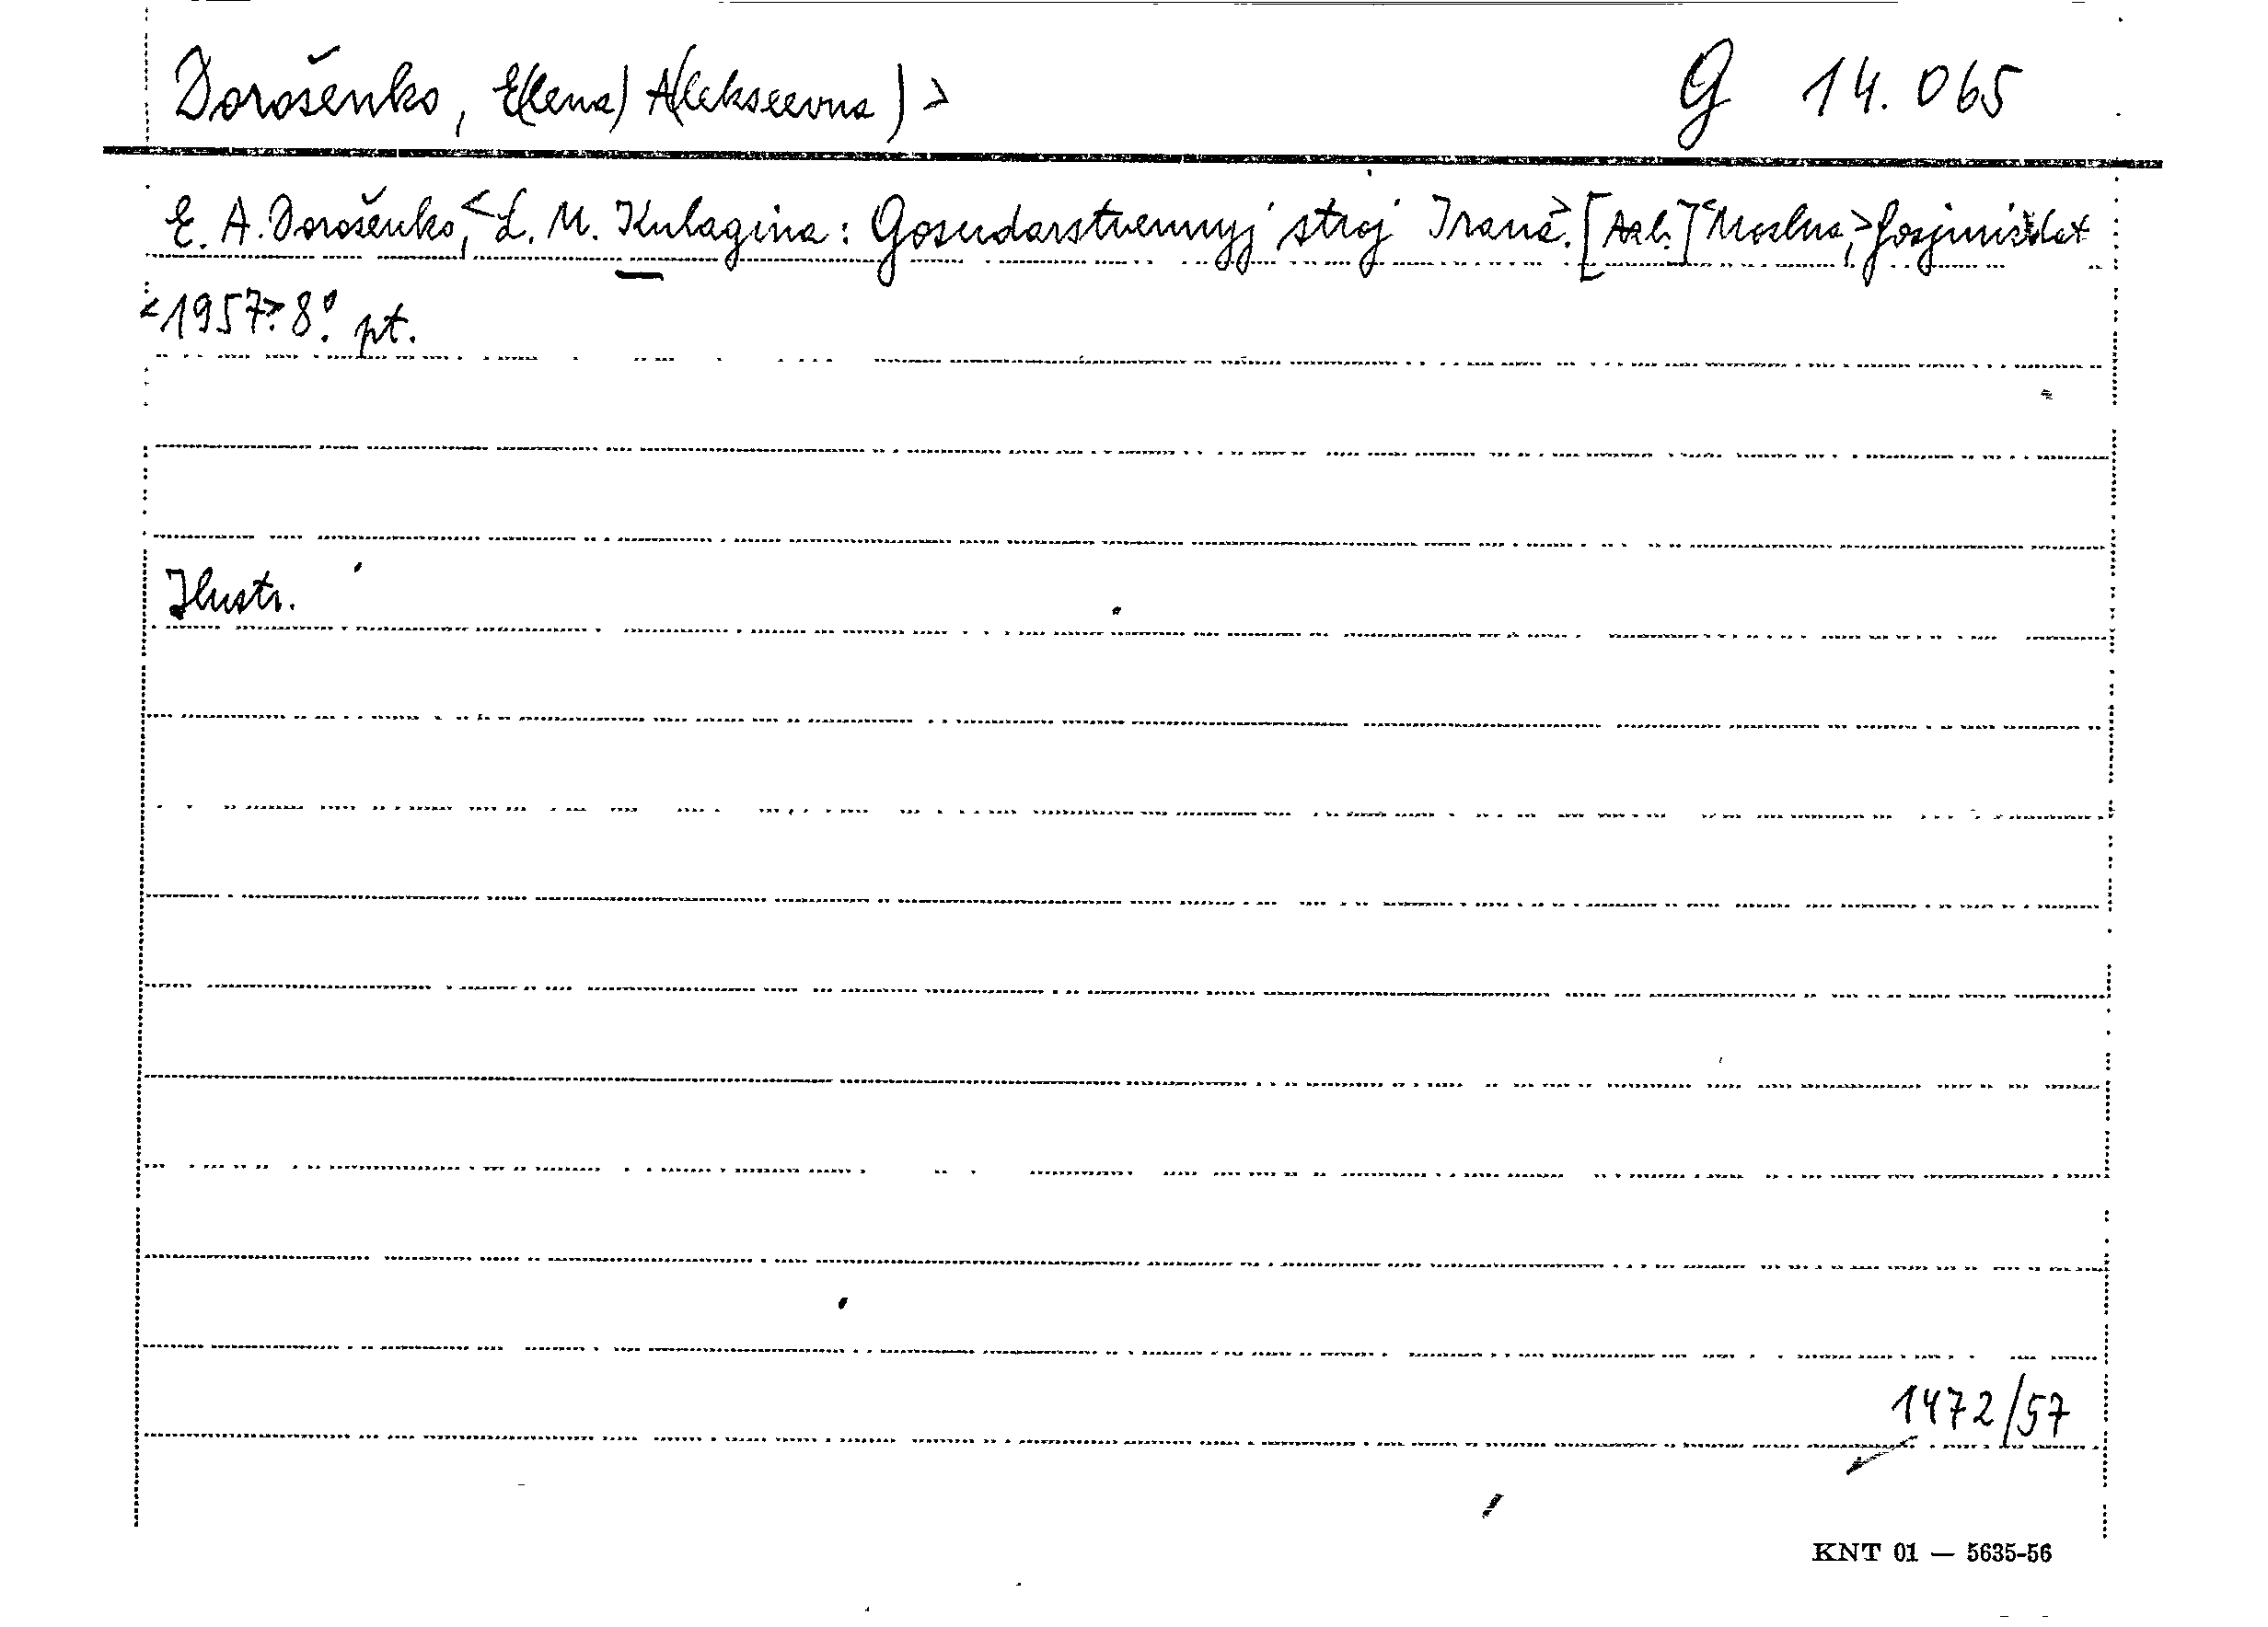 Dorošenko, E(lena) A(lekseevna) > G 14.065
E. A. Dorošenko, <L. M. Kulagina: Gosudarstvennyj stroj Irana>. [Azb.] <Moskva,> Gosjurizdat
<1957>. 8°. pt.
Ilustr.
1472/57
KNT 01 — 5635-56